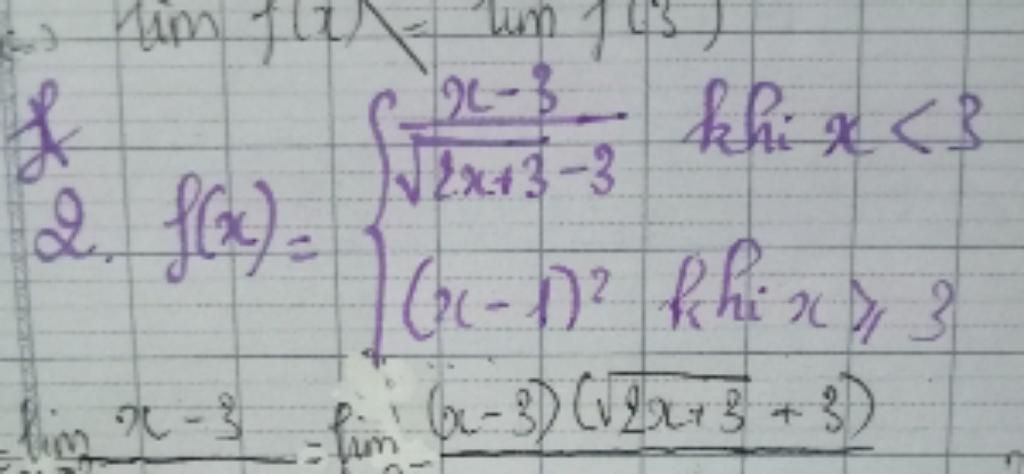 lim f(x) = lim f(3)
2. f(x) = { (x-3)/(√(2x+3) -3) khi x < 3
(x-1)² khi x ⩾ 3
= lim x-3 = lim (x-3)(√(2x+3) + 3)